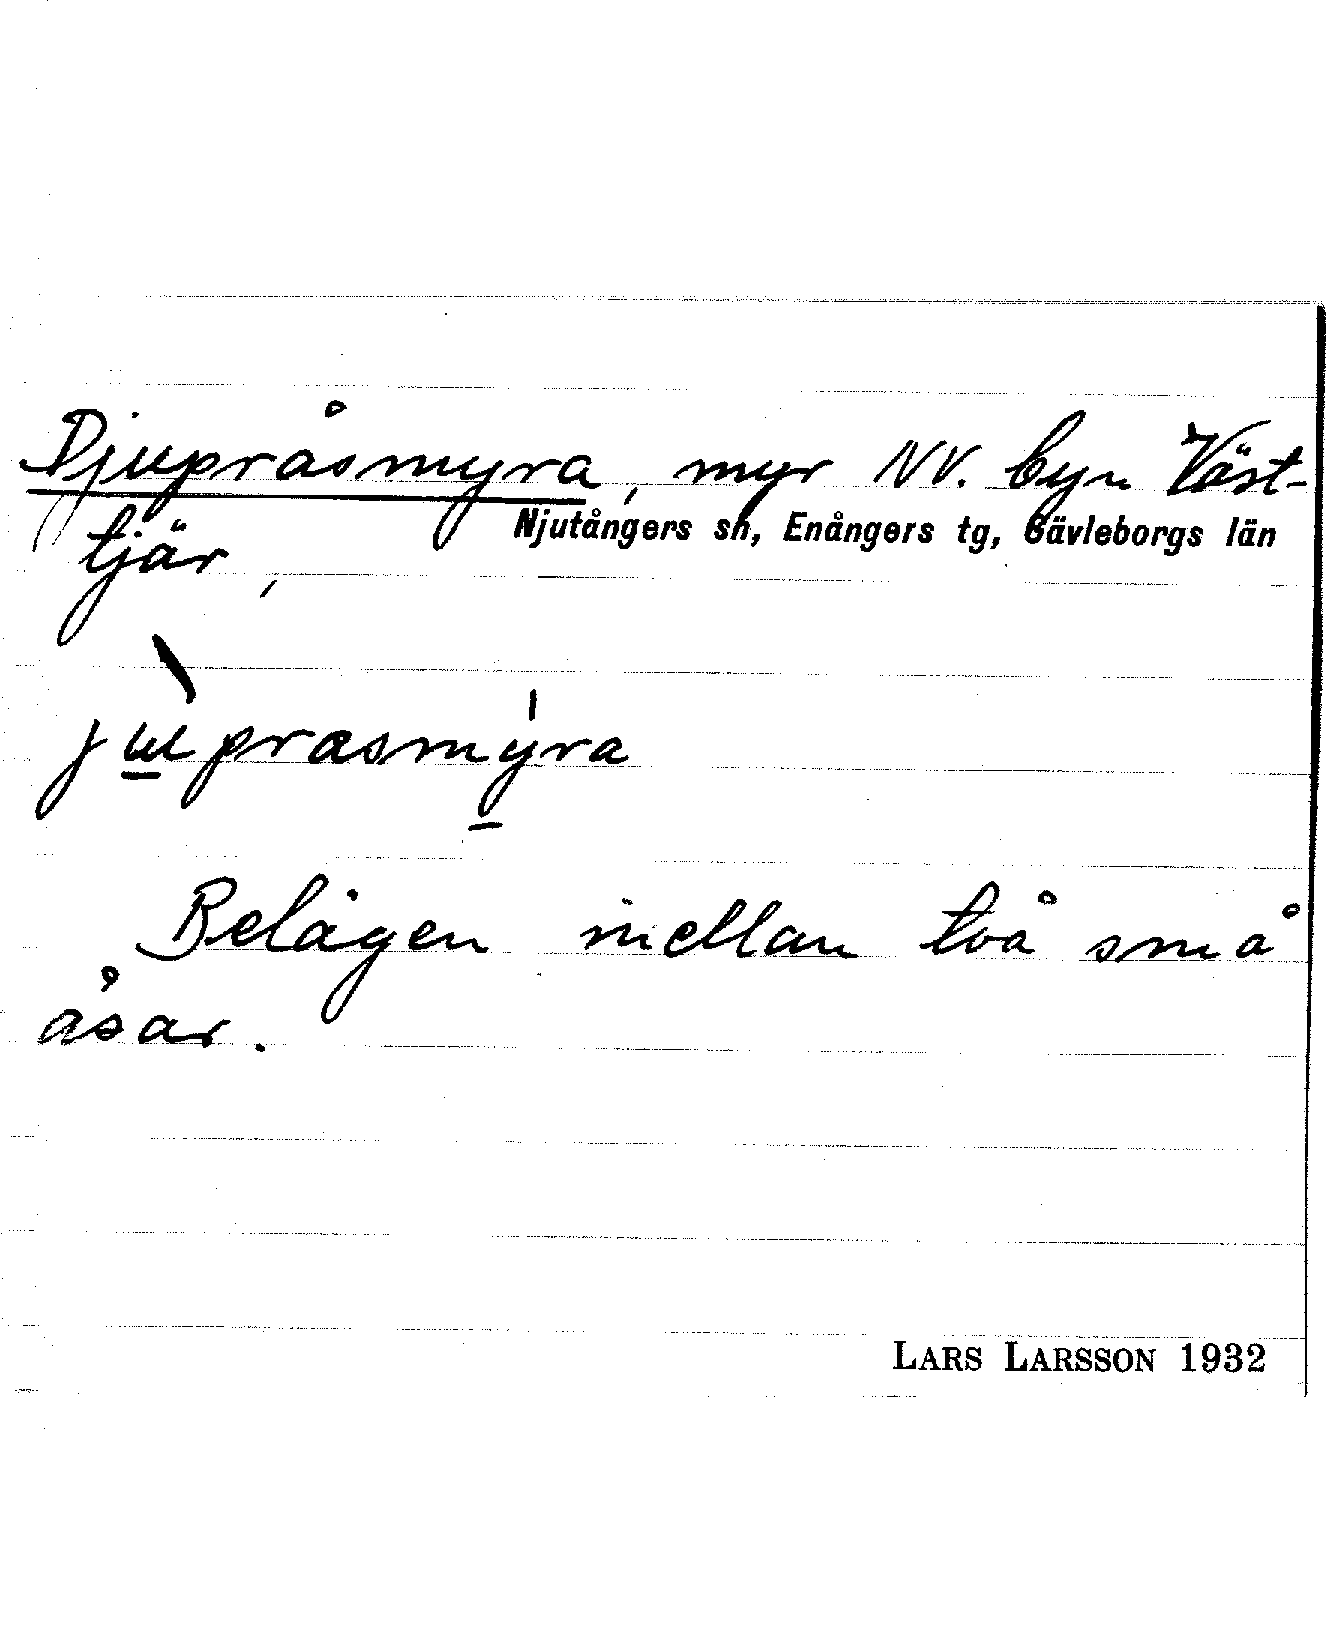 Djupråsmyra, myr NV. byn Väst-
Njutångers sn, Enångers tg, Gävleborgs län
tjär,
jùprasmýra
Belägen mellan två små
åsar.
LARS LARSSON 1932